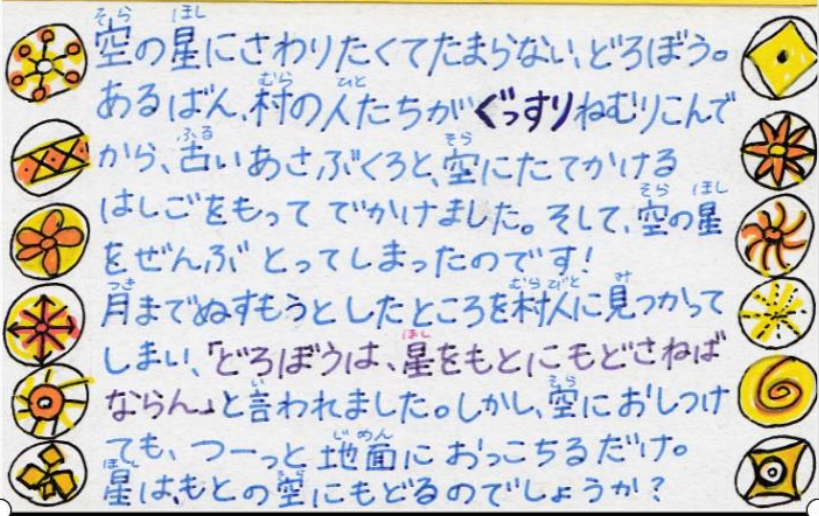 空の星にさわりたくてたまらない、どろぼう。
あるばん、村の人たちがぐっすりねむりこんで
から、古いあさぶくろと、空にたてかける
はしごをもって でかけました。そして、空の星
をぜんぶ とってしまったのです!
月までぬすもうとしたところを村人に見つかって
しまい、「どろぼうは、星をもとにもどさねば
ならん」と言われました。しかし、空におしつけ
ても、つーっと地面に おっこちるだけ。
星は、もとの空にもどるのでしょうか?